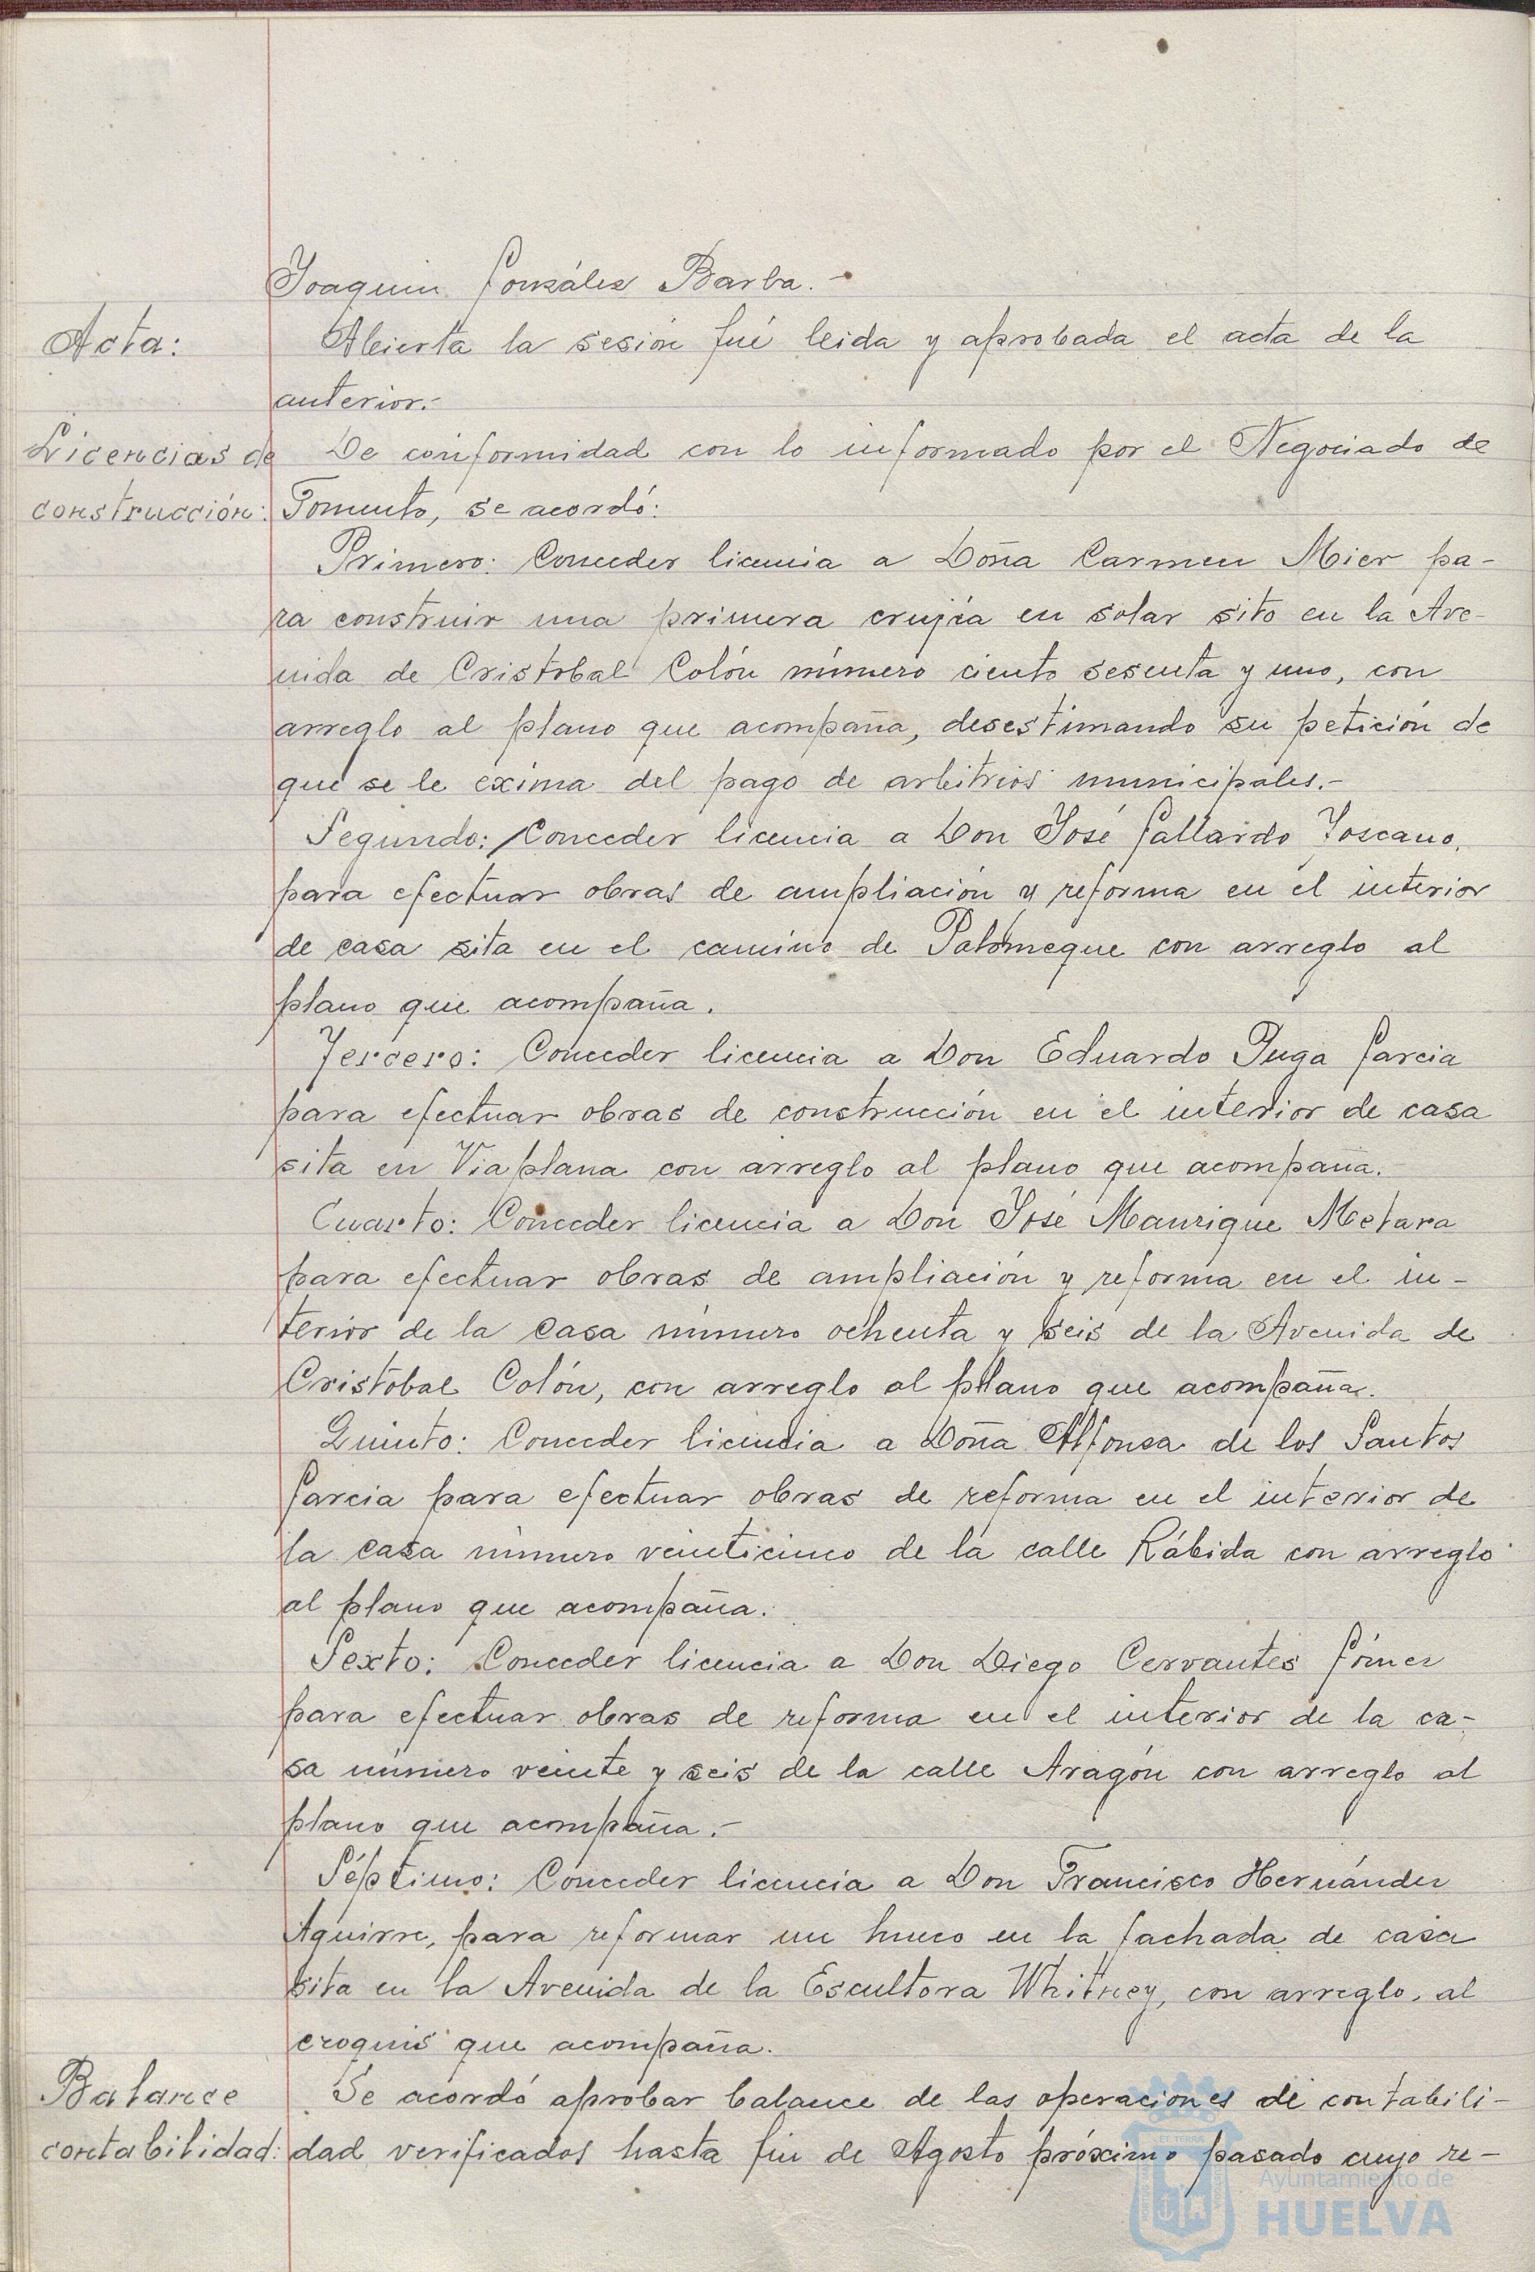 Joaquin González Barba.-
Acta:
Abierta la sesión fué leida y aprobada el acta de la
anterior.-
Licencias de
construcción:
De conformidad con lo informado por el Negociado de
Fomento, se acordó:
Primero: Conceder licencia a Doña Carmen Mier pa-
ra construir una primera crujía en solar sito en la Ave-
nida de Cristobal Colón número ciento sesenta y uno, con
arreglo al plano que acompaña, desestimando su petición de
que se le exima del pago de arbitrios municipales.-
Segundo: Conceder licencia a Don José Gallardo Toscano,
para efectuar obras de ampliación y reforma en el interior
de casa sita en el camino de Palomeque con arreglo al
plano que acompaña.
Tercero: Conceder licencia a Don Eduardo Puga Garcia
para efectuar obras de construcción en el interior de casa
sita en Viaplana con arreglo al plano que acompaña.-
Cuarto: Conceder licencia a Don José Manrique Metara
para efectuar obras de ampliación y reforma en el in-
terior de la casa número ochenta y seis de la Avenida de
Cristobal Colón, con arreglo al plano que acompaña.
Quinto: Conceder licencia a Doña Alfonsa de los Santos
Garcia para efectuar obras de reforma en el interior de
la casa número veinticinco de la calle Rábida con arreglo
al plano que acompaña.
Sexto: Conceder licencia a Don Diego Cervantes Gómez
para efectuar obras de reforma en el interior de la ca-
sa número veinte y seis de la calle Aragón con arreglo al
plano que acompaña.-
Séptimo: Conceder licencia a Don Francisco Hernández
Aguirre, para reformar un hueco en la fachada de casa
sita en la Avenida de la Escultora Whitney, con arreglo al
croquis que acompaña.
Balance
contabilidad:
Se acordó aprobar balance de las operaciones de contabili-
dad verificados hasta fin de Agosto próximo pasado cuyo re-
Ayuntamiento de
HUELVA